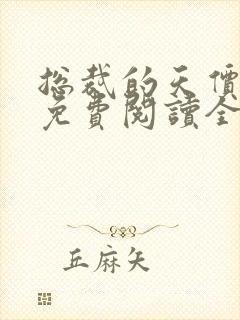 总裁的天價
免費閱讀全
丘麻矢